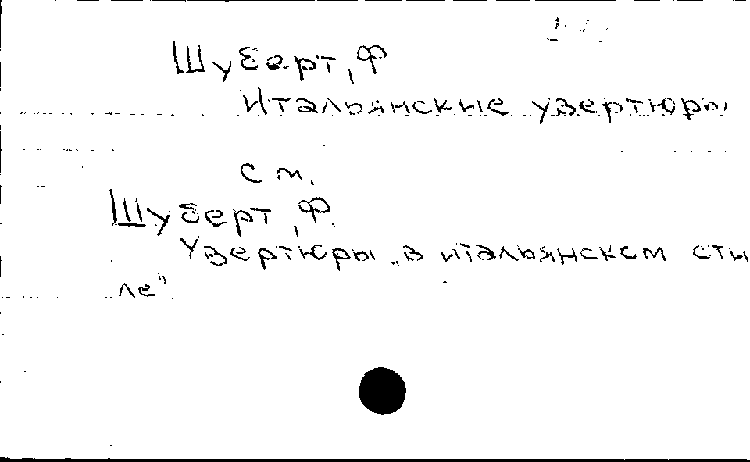 Шуберт, Ф
Итальянские увертюры
см.
Шуберт, Ф.
Увертюры „в итальянском сти
ле"